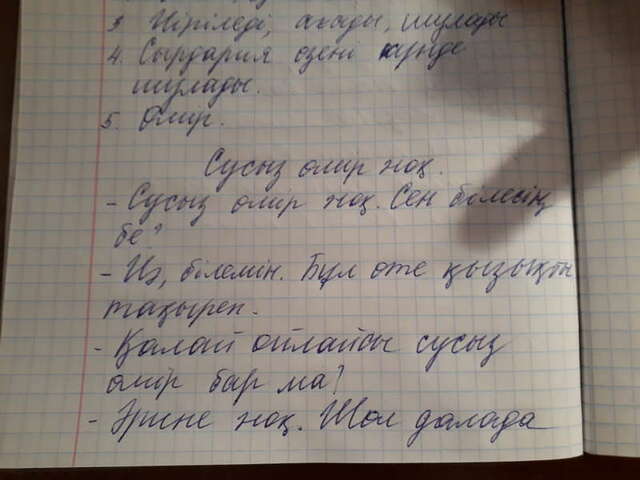 3. Иіріледі, ағады, шулады
4. Сырдария өзені күнде
шулады.
5. Өмір.
Сусыз өмір жоқ.
- Сусыз өмір жоқ. Сен білесің
бе?
- Иә, білемін. Бұл өте қызықты
тақырып.
- Қалай ойлайсы сусыз
өмір бар ма?
- Әрине жоқ. Шөл далада